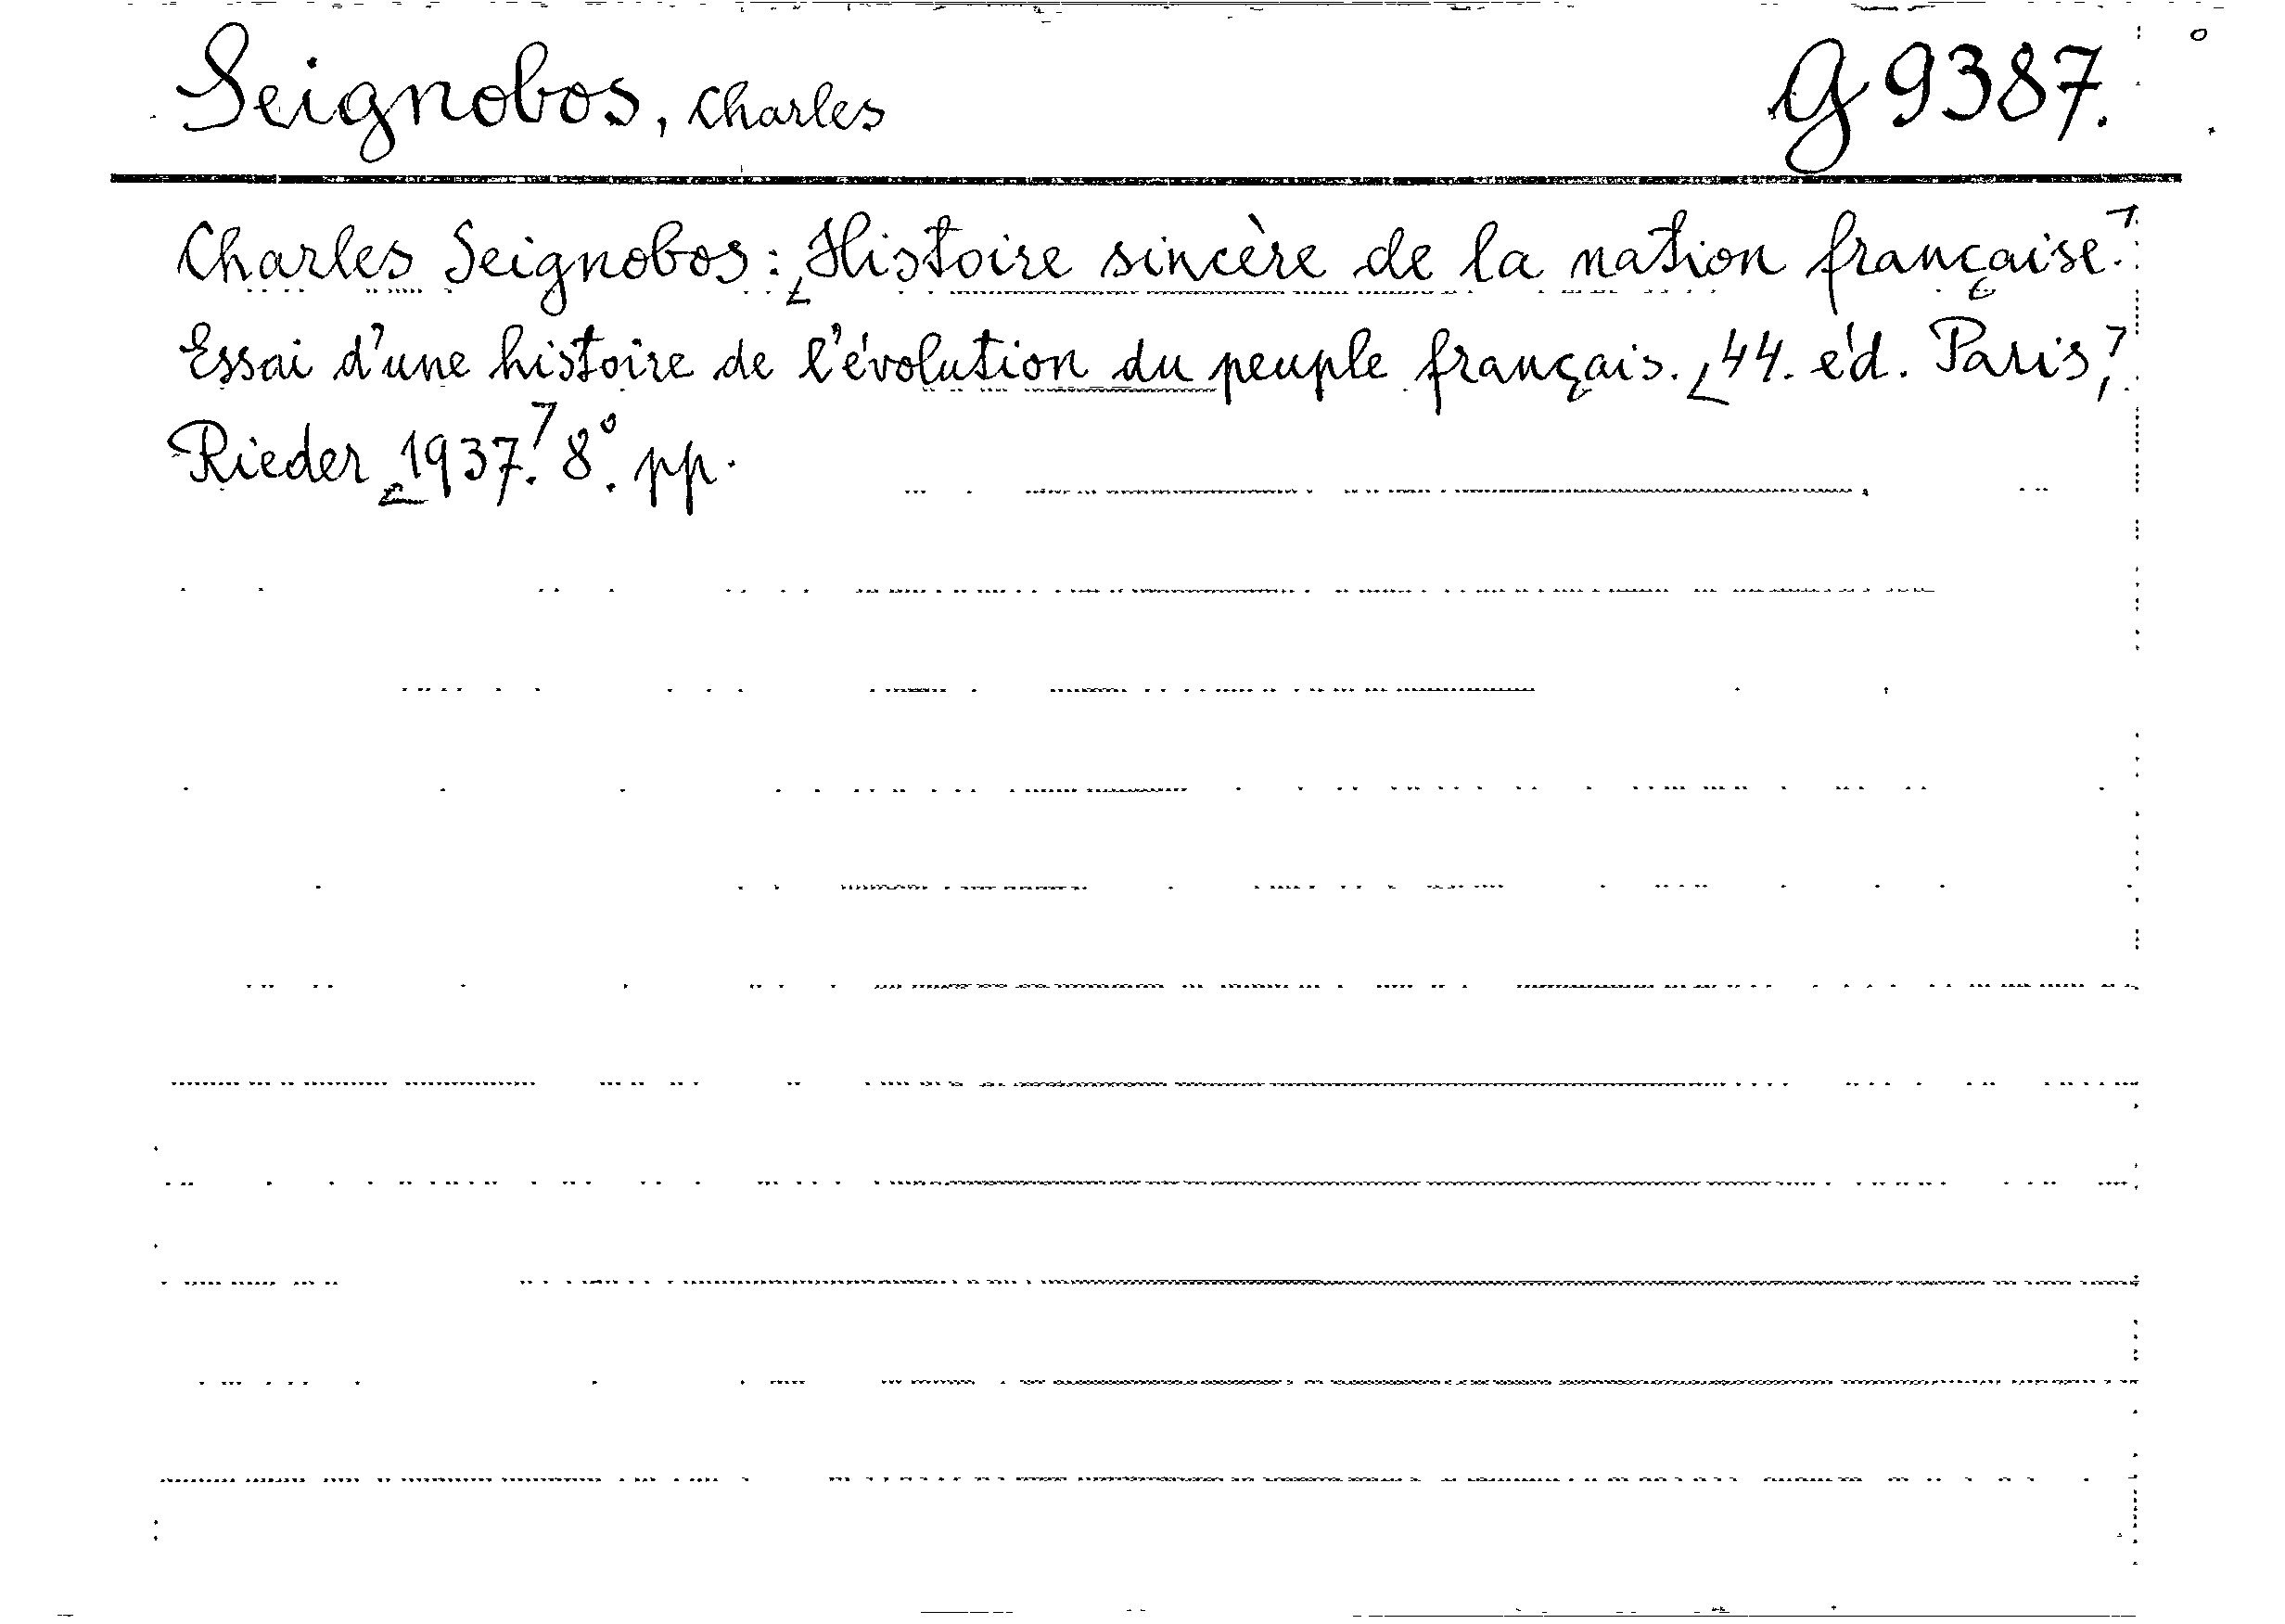 Seignobos, Charles G 9387.
Charles Seignobos: Histoire sincère de la nation française.
Essai d'une histoire de l'évolution du peuple français. 44. éd. Paris,
Rieder 1937. 8°. pp.